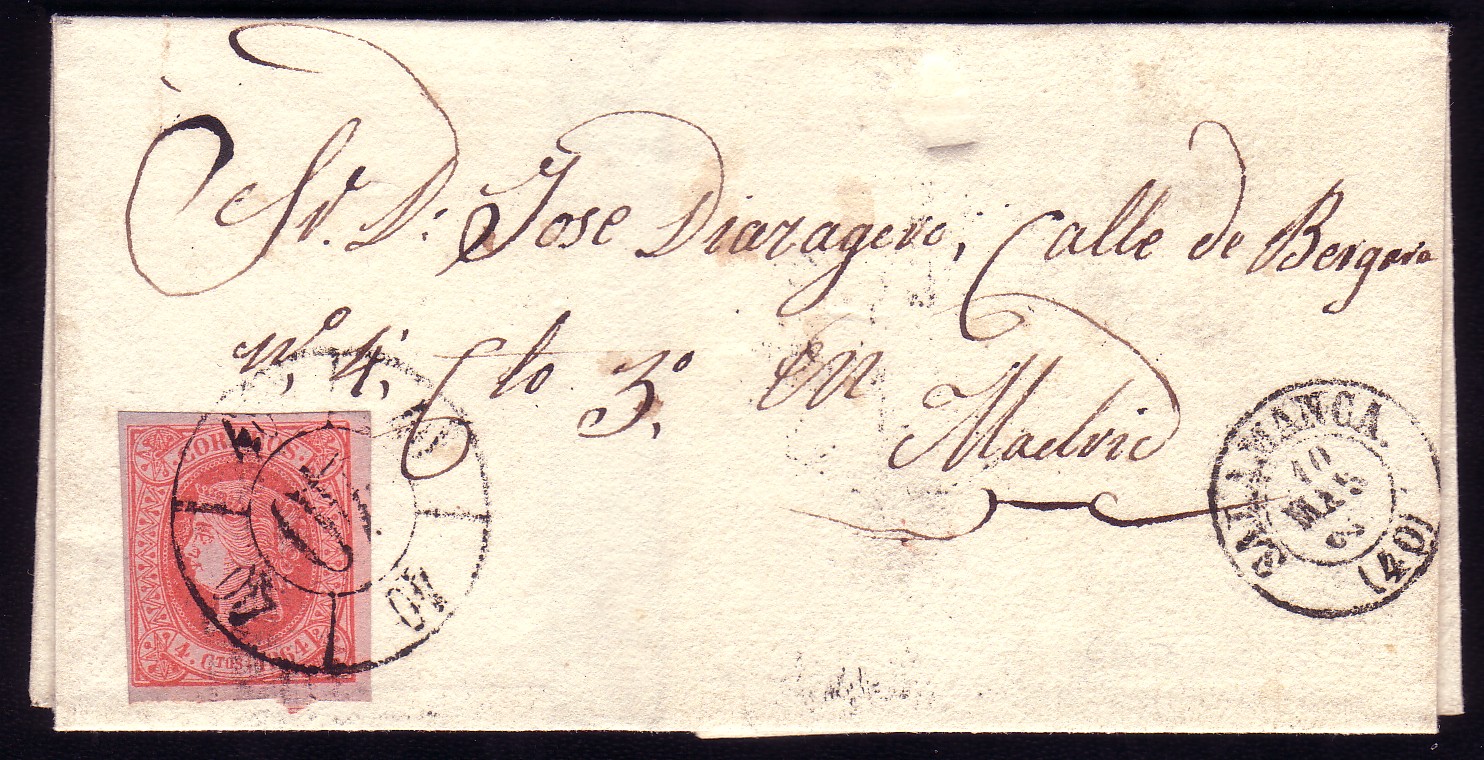 Sr. D. Jose Diazagero, Calle de Bergara
nº 4, Cto 3º en
Madrid
CORREOS.
4. CTOS. 1864
40
40
40
40
SALAMANCA.
10
MAR
(40)